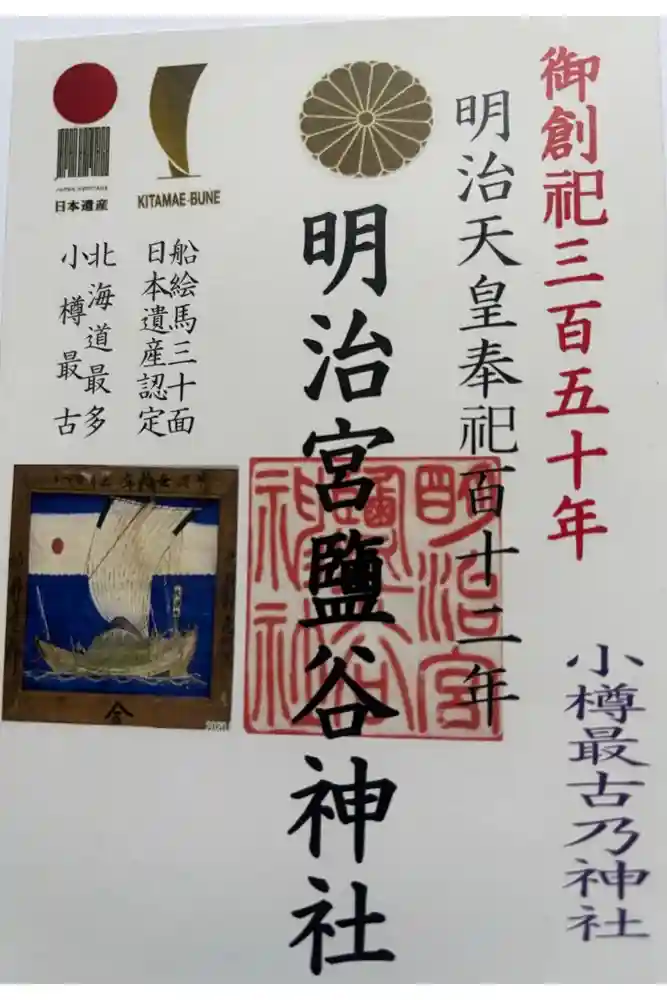 御創祀三百五十年
小樽最古乃神社
明治天皇奉祀百十二年
明治宮鹽谷神社
KITAMAE-BUNE
船絵馬三十面
日本遺産認定
JAPAN HERITAGE
日本遺産
北海道最多
小樽最古